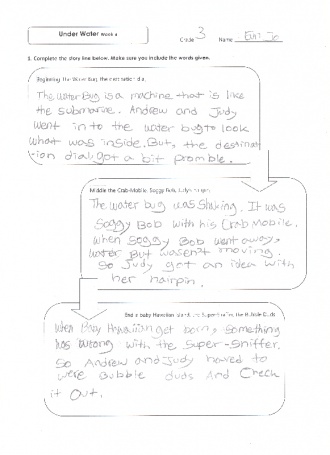 Under Water Week 4
Grade 3 Name
1. Complete the story line below. Make sure you include the words given.
Beginning: the Water Bug, the destination dial
The Water Bug is a machine that is like
the submarine. Andrew and Judy
went in to the water bug to look
what was inside. But, the destinat
-ion dial got a bit promble.
Middle: the Crab-Mobile, Soggy Bob, Judy's hairpin
The water bug was shaking. It was
Soggy Bob with his Crab Mobile.
when Soggy Bob went away,
water But wasn't moving.
So Judy got an idea with
her hairpin.
End: a baby Hawaiian Island, the Super-Sniffer, the Bubble Duds
When Baby Hawaiian get born, Something
has wrong with the Super-Sniffer.
So Andrew and Judy haved to
were Bubble duds And Check
it Out.